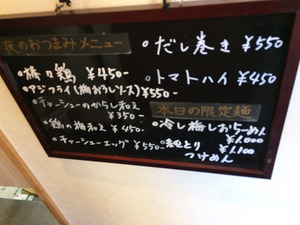 夜のおつまみメニュー
・椿口鶏 ¥450-
・アジフライ(梅おろしソース) ¥550-
・チャーシューのからし和え
¥350-
・鶏の梅和え ¥450-
・チャーシューエッグ ¥550-
・だし巻き ¥550
・トマトハイ ¥450
本日の限定麺
・冷し梅しおらーめん
¥1,000
・麹とり ¥1,100
つけめん